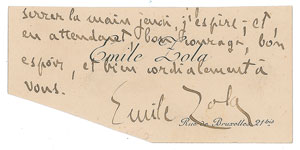 serrer la main jeudi, j'espère; et,
en attendant bon courage, bon
Emile Zola
espoir, et bien cordialement à
vous.
Emile Zola
Rue de Bruxelles, 21bis